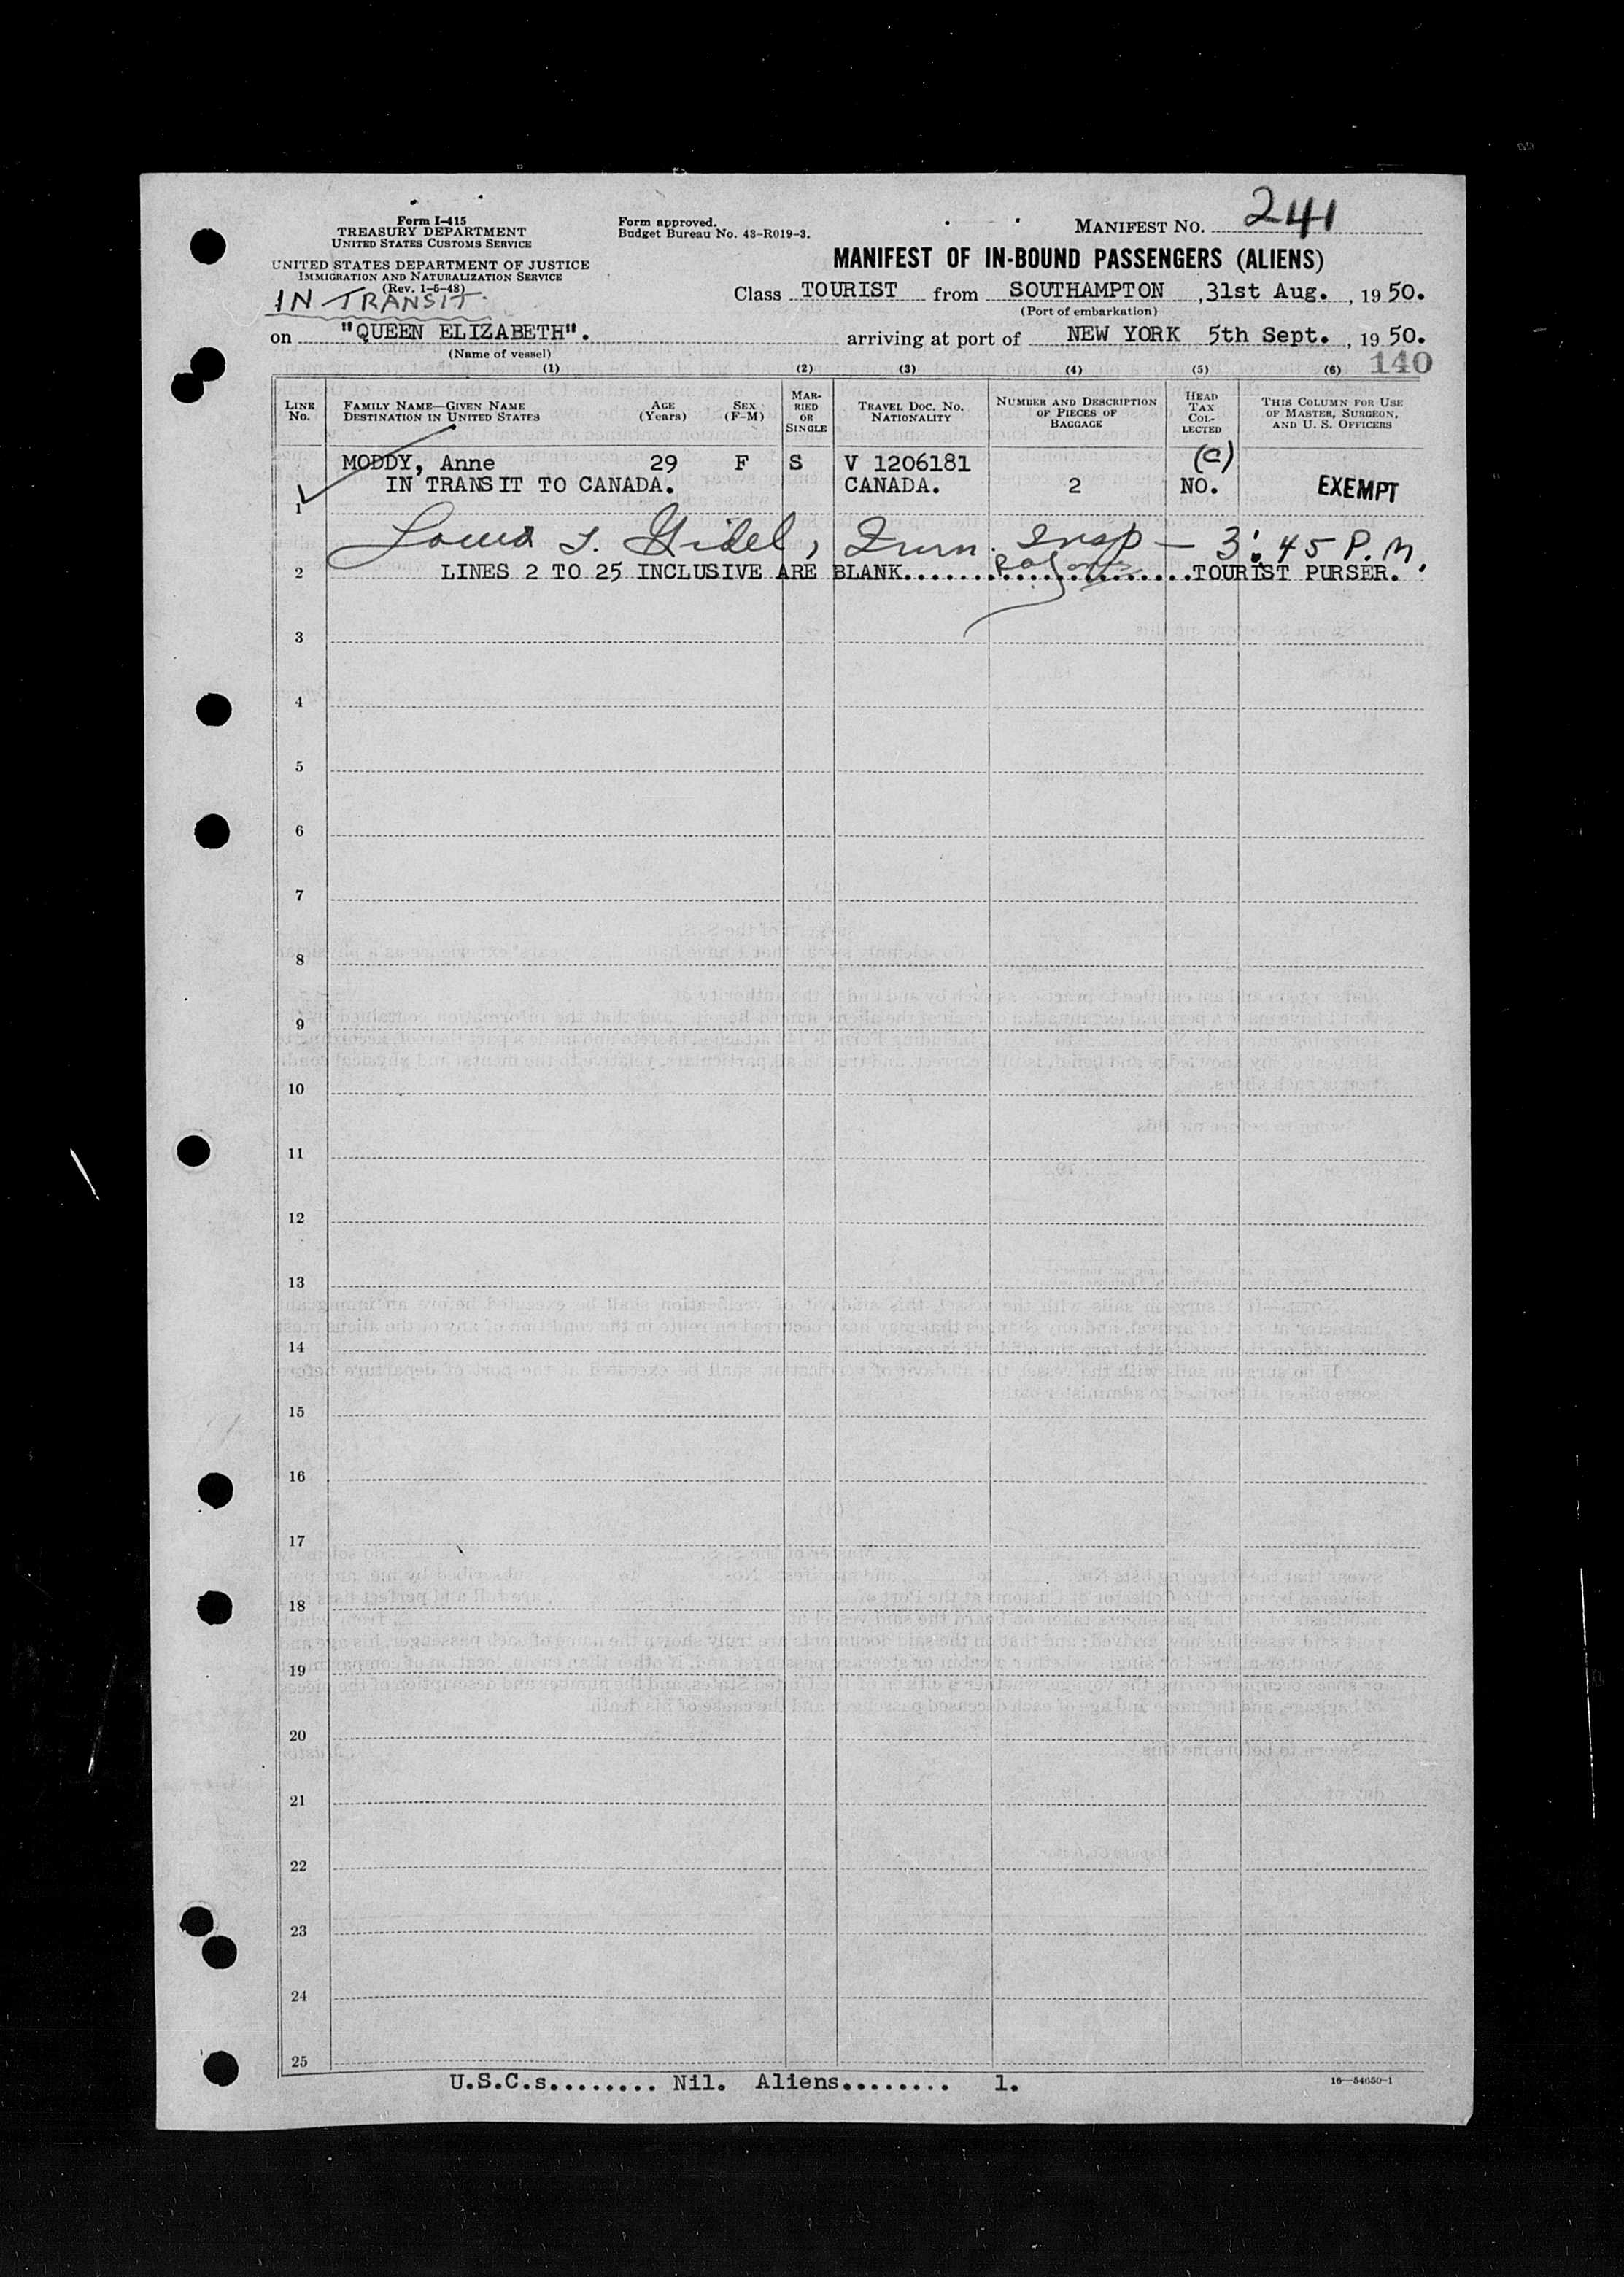 Form I-415
TREASURY DEPARTMENT
UNITED STATES CUSTOMS SERVICE
UNITED STATES DEPARTMENT OF JUSTICE
IMMIGRATION AND NATURALIZATION SERVICE
(Rev. 1-5-48)
IN TRANSIT.
Form approved.
Budget Bureau No. 43-R019-3.
MANIFEST NO. 241
MANIFEST OF IN-BOUND PASSENGERS (ALIENS)
Class TOURIST from SOUTHAMPTON , 31st Aug. , 19 50.
(Port of embarkation)
on "QUEEN ELIZABETH". arriving at port of NEW YORK 5th Sept. , 19 50.
(Name of vessel)
140
(1) (2) (3) (4) (5) (6)
LINE NO. FAMILY NAME—GIVEN NAME DESTINATION IN UNITED STATES AGE (Years) SEX (F-M) MARRIED OR SINGLE TRAVEL DOC. NO. NATIONALITY NUMBER AND DESCRIPTION OF PIECES OF BAGGAGE HEAD TAX COLLECTED THIS COLUMN FOR USE OF MASTER, SURGEON, AND U. S. OFFICERS
MODDY, Anne 29 F S V 1206181 (c)
1 IN TRANSIT TO CANADA. CANADA. 2 NO. EXEMPT
Gidel, Imm. Insp — 3:45 P.M.
2 LINES 2 TO 25 INCLUSIVE ARE BLANK...........................TOURIST PURSER.
3
4
5
6
7
8
9
10
11
12
13
14
15
16
17
18
19
20
21
22
23
24
25
U.S.C.s........ Nil. Aliens........ 1.
16—54650-1